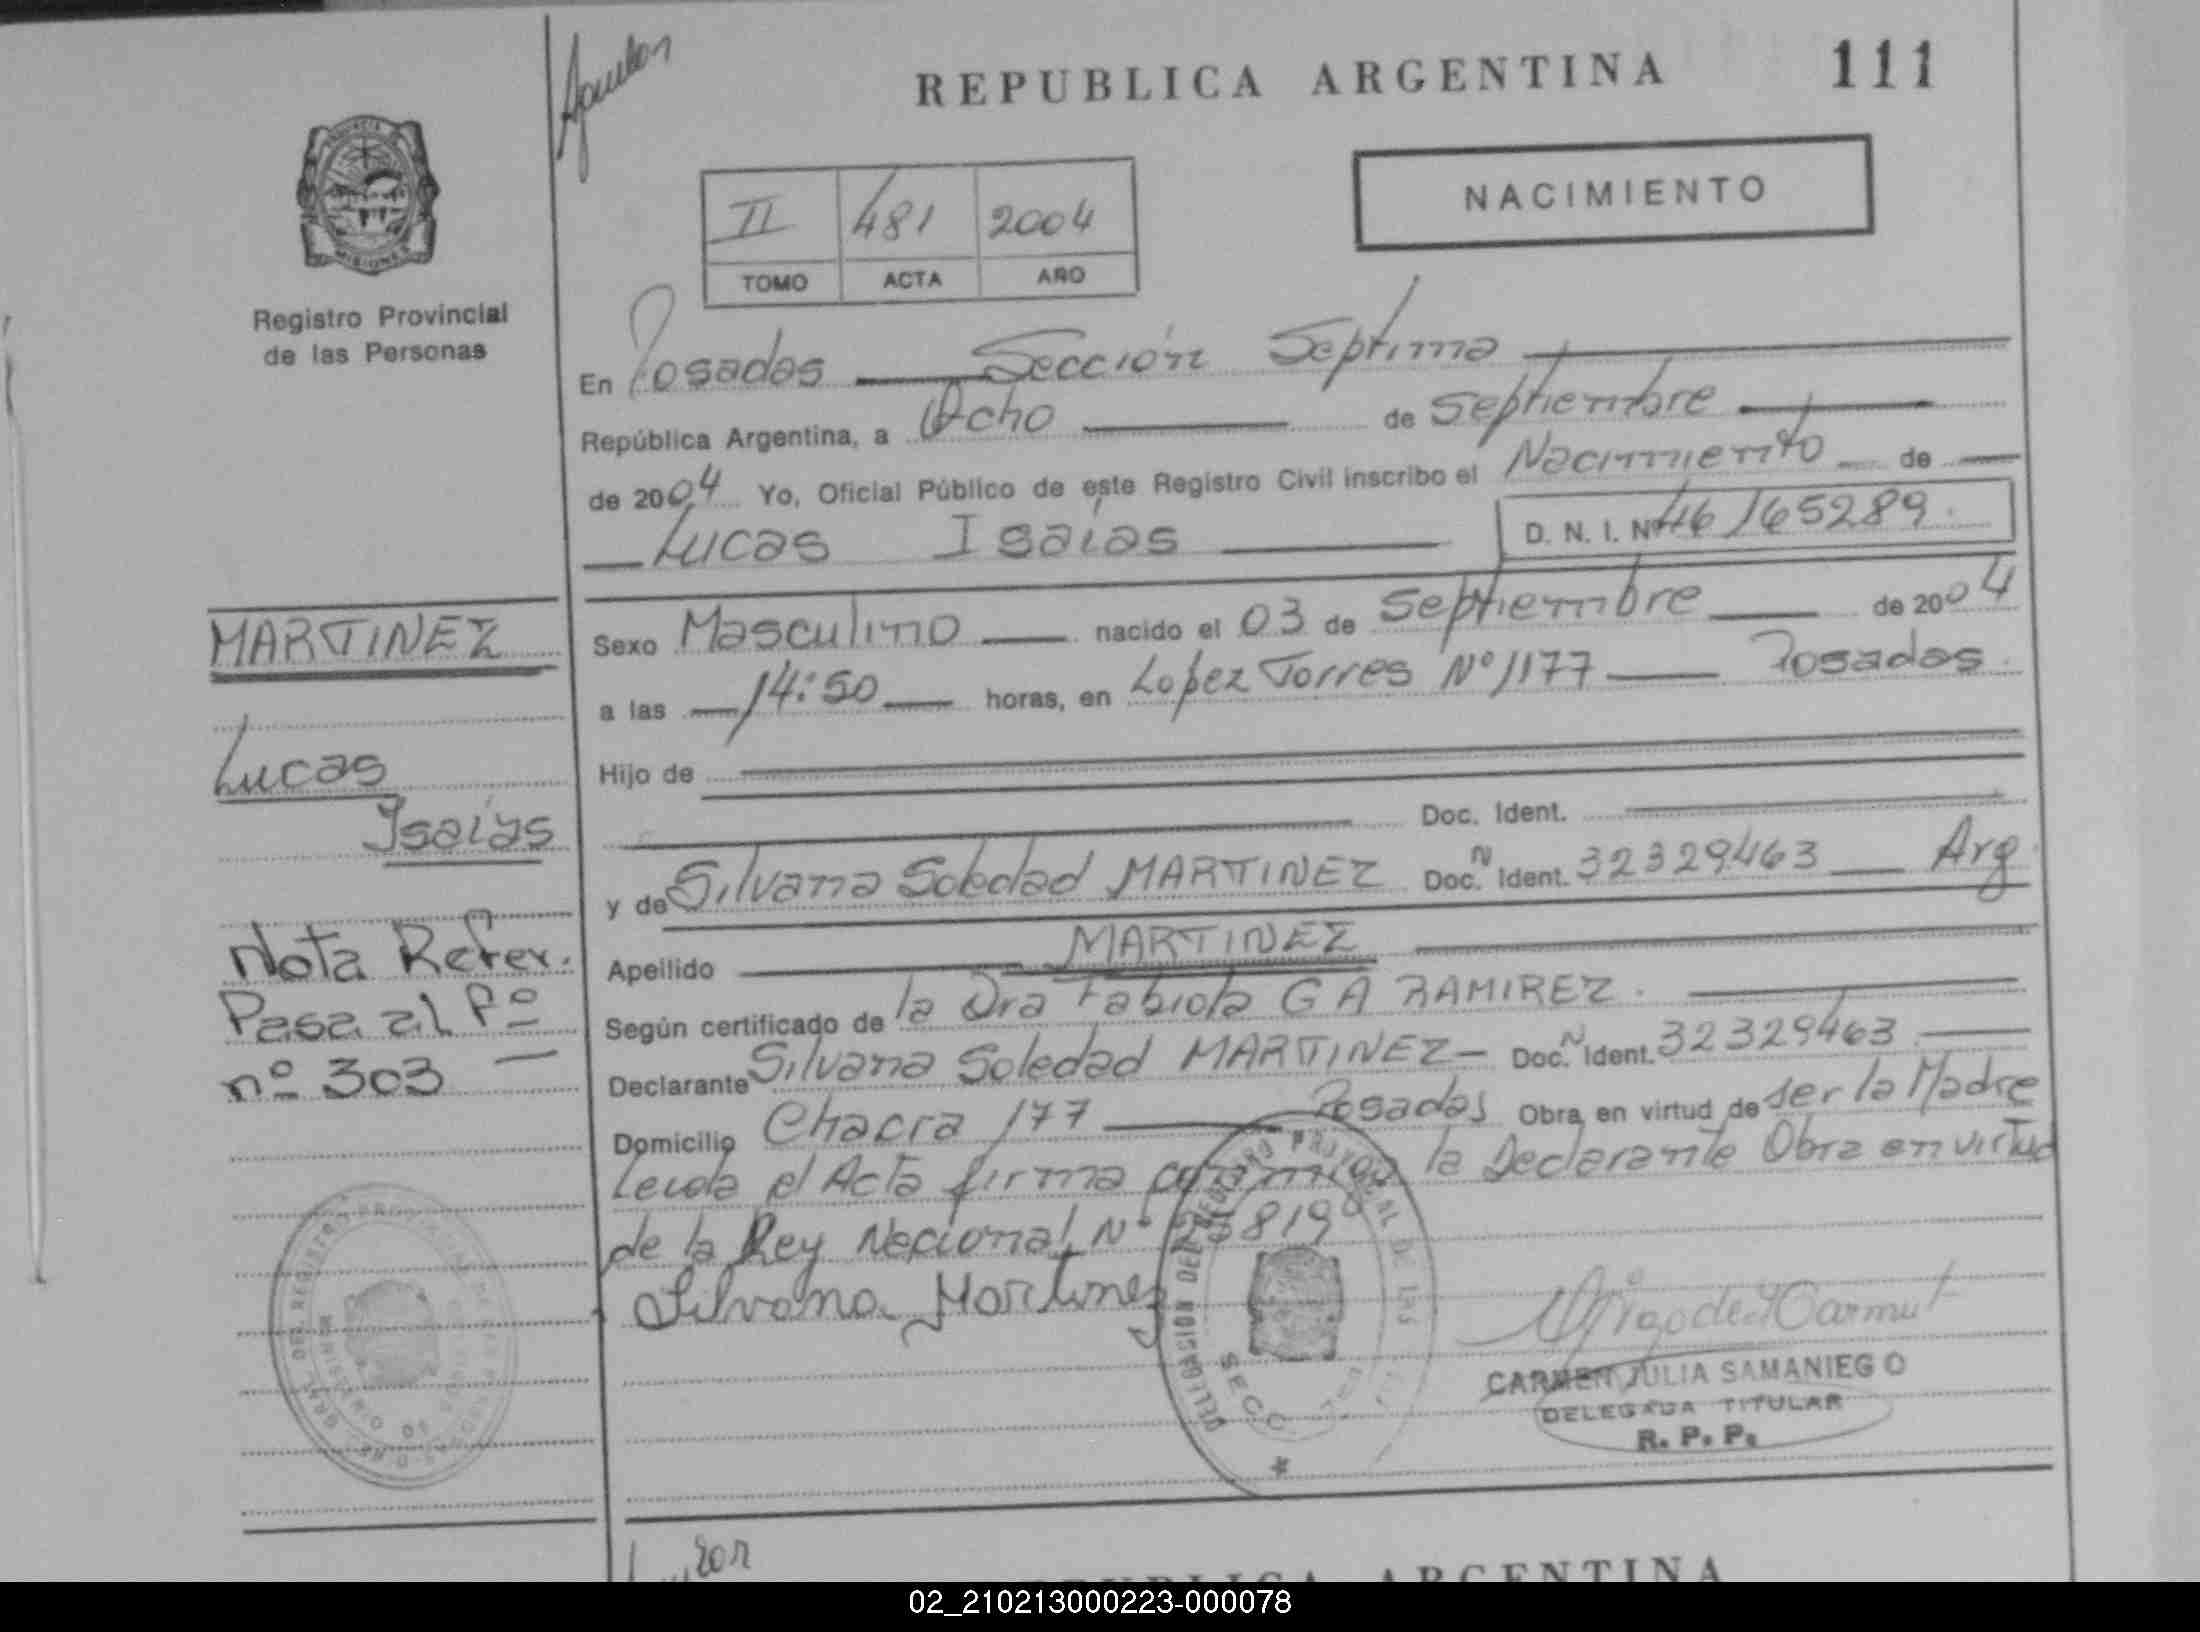 REPUBLICA ARGENTINA 111
NACIMIENTO
II 481 2004
TOMO ACTA AÑO
Registro Provincial
de las Personas
En Posadas Sección Septima
República Argentina, a Ocho de Septiembre
de 2004 Yo, Oficial Público de este Registro Civil inscribo el Nacimiento de
Lucas Isaías D. N. I. Nº 46165289.
MARTINEZ
Lucas
Isaías
Sexo Masculino nacido el 03 de Septiembre de 2004
a las 14:50 horas, en Lopez Torres Nº 1177 Posadas.
Hijo de
Doc. Ident.
y de Silvana Soledad MARTINEZ Doc. N Ident. 32329463 Arg.
Apellido MARTINEZ
Según certificado de la Dra Fabiola G A RAMIREZ.
Declarante Silvana Soledad MARTINEZ Doc. N Ident. 32329463
Domicilio Chacra 177 Posadas Obra en virtud de ser la Madre
Leida el Acta firma conmigo la Declarante Obra en virtud
de la Ley Nacional Nº 25819
Silvana Martinez
Nota Refer.
Pasa al Fº
nº 303
CARMEN JULIA SAMANIEGO
DELEGADA TITULAR
R. P. P.
REPUBLICA ARGENTINA
02_210213000223-000078